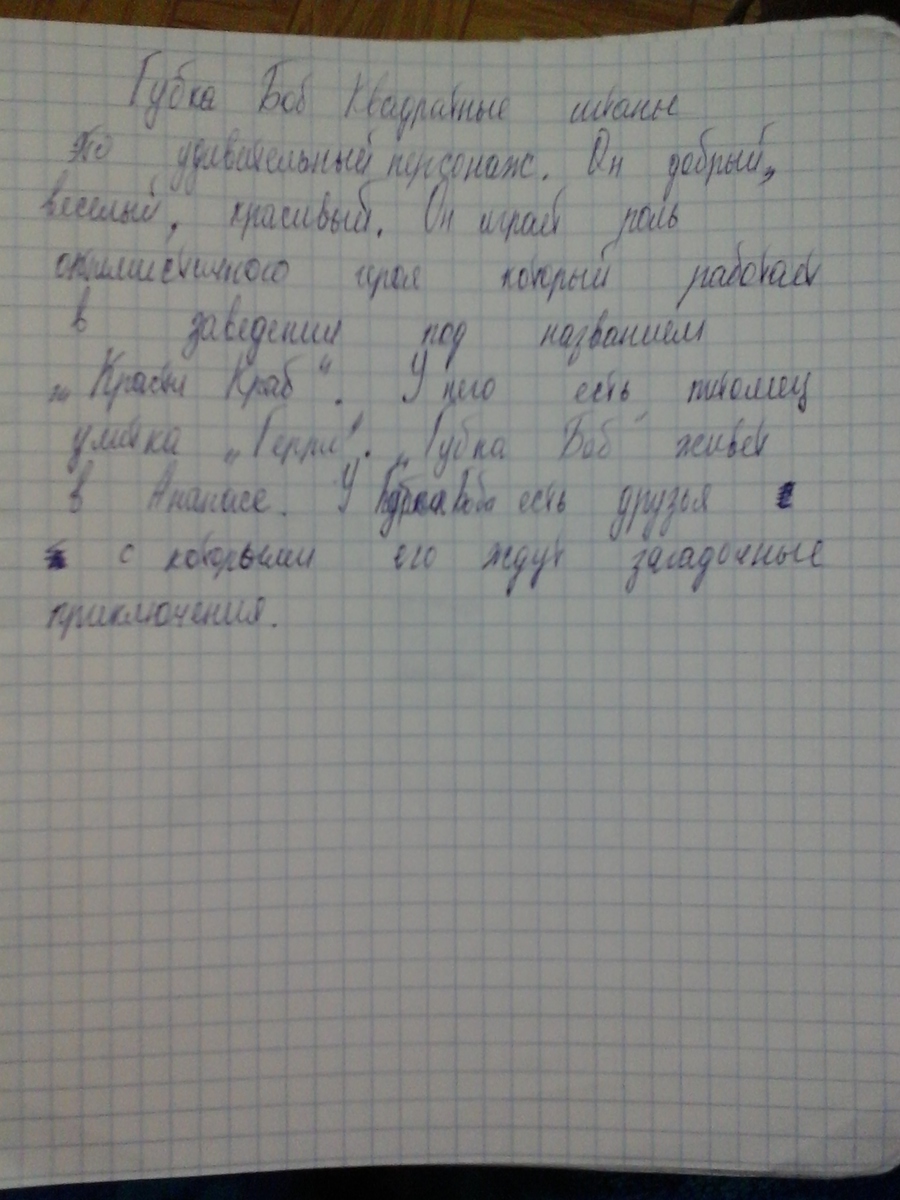 Губка Боб Квадратные штаны
это удивительный персонаж. Он добрый,
веселый, красивый. Он играет роль
оптимистичного героя который работает
в заведении под названием
„Красти Краб“. У него есть питомец
улитка „Герри“. „Губка Боб“ живет
в Ананасе. У Губки Боба есть друзья
с которыми его ждут загадочные
приключения.